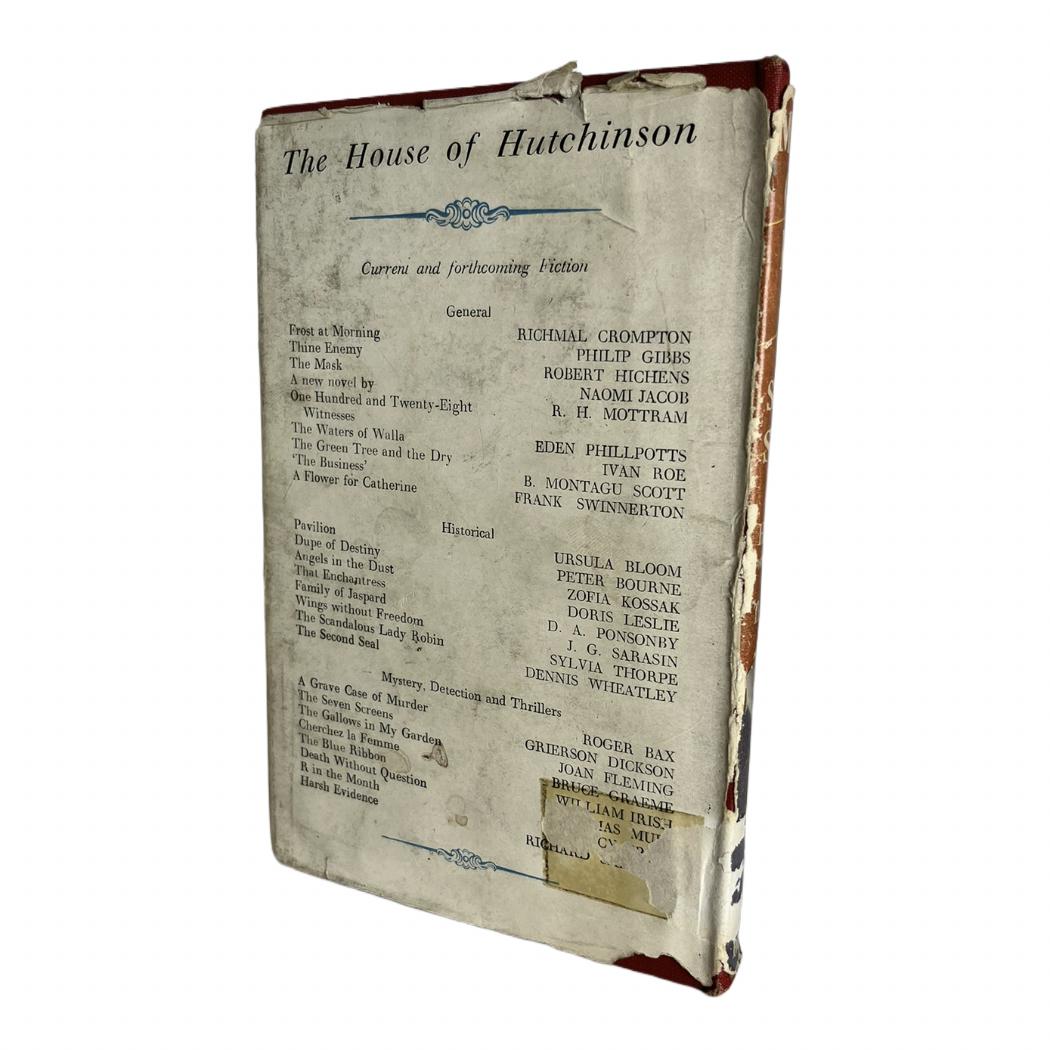 The House of Hutchinson
Current and forthcoming Fiction
General
Frost at Morning RICHMAL CROMPTON
Thine Enemy PHILIP GIBBS
The Mask ROBERT HICHENS
A new novel by NAOMI JACOB
One Hundred and Twenty-Eight R. H. MOTTRAM
Witnesses
The Waters of Walla EDEN PHILLPOTTS
The Green Tree and the Dry IVAN ROE
'The Business' B. MONTAGU SCOTT
A Flower for Catherine FRANK SWINNERTON
Historical
Pavilion URSULA BLOOM
Dupe of Destiny PETER BOURNE
Angels in the Dust ZOFIA KOSSAK
That Enchantress DORIS LESLIE
Family of Jaspard D. A. PONSONBY
Wings without Freedom J. G. SARASIN
The Scandalous Lady Robin SYLVIA THORPE
The Second Seal DENNIS WHEATLEY
Mystery, Detection and Thrillers
A Grave Case of Murder ROGER BAX
The Seven Screens GRIERSON DICKSON
The Gallows in My Garden JOAN FLEMING
Cherchez la Femme BRUCE GRAEME
The Blue Ribbon WILLIAM IRISH
Death Without Question
R in the Month
Harsh Evidence RICHARD